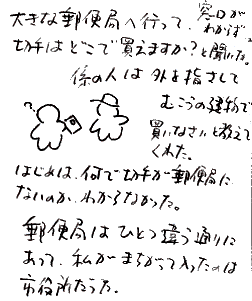 大きな郵便局へ行って、窓口がわからず
切手はどこで買えますか?と聞いた。
係の人は外を指さして
むこうの建物で
買いなさいと教えて
くれた。
はじめは、何で切手が郵便局に
ないのか、わからなかった。
郵便局はひとつ違う通りに
あって、私がまちがって入ったのは
市役所だった。